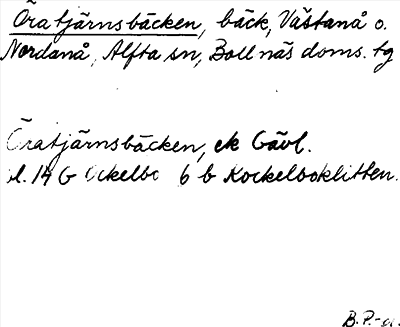 Öratjärnsbäcken, bäck, Västanå o.
Nordanå, Alfta sn, Bollnäs doms. tg
Öratjärnsbäcken, ek Gävl.
bl. 14 G Ockelbo 6 b Kockelboklitten.
B. P-n.